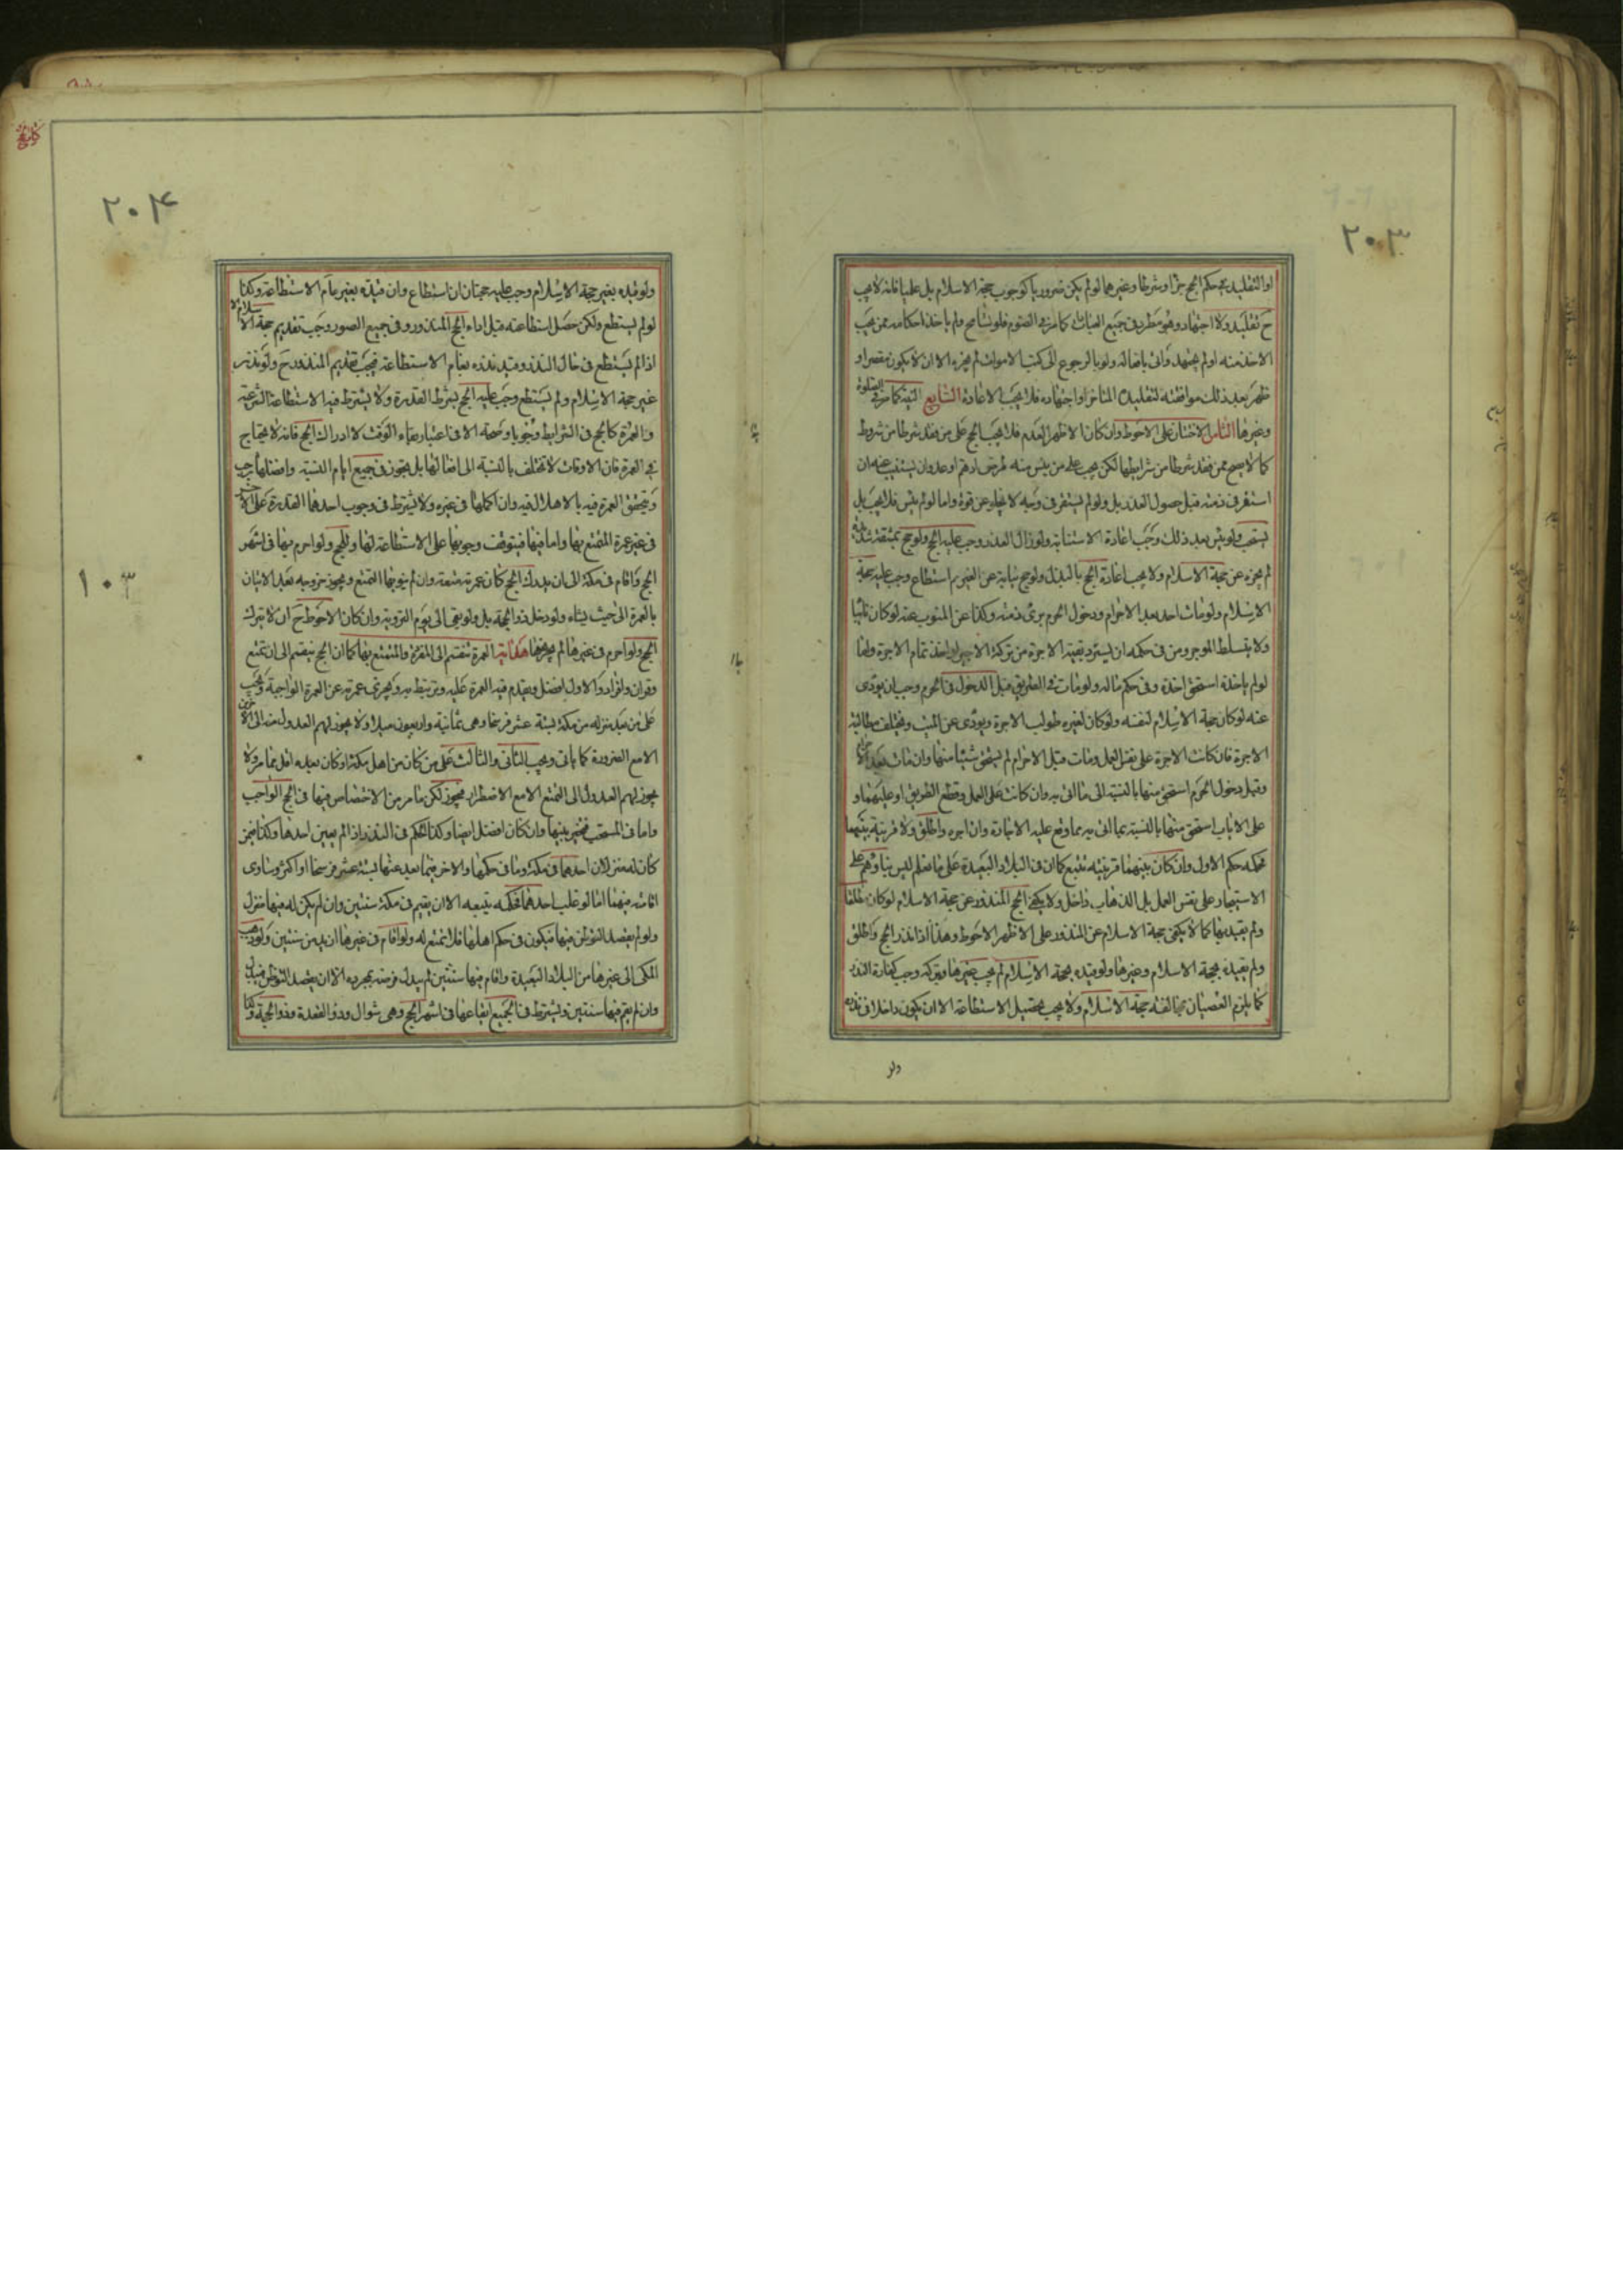 ٢٠٣
او التقليد في حكم الحج جزا و شرطا و غيرهما لو لم يكن ضروريا كوجوب حجة الاسلام بل علميا فانه لا يجب
ح تقليد ولا اجتهاد وهو مطرد في جميع العبادات كما مر في الصوم فلو تسامح ولم ياخذ احكامه ممن يجب
الاخذ منه او لم يجتهد واتى بافعاله ولو بالرجوع الى كتب الاموات لم يجزه الا ان لا يكون مقصرا و
ظهر بعد ذلك موافقته لتقليده المتاخر او اجتهاده فلا يجب الاعادة السابع النية كما مر في الصلوة
وغيرها الثامن الاختتان على الاحوط وان كان الاظهر العدم فلا يجب الحج على من فقد شرطا من شروط
كما لا يصح ممن فقد شرطا من شرايطها لكن يجب على من يئس منه لمرض او هرم او عدو ان يستنيب عنه ان
استقر في ذمته قبل حصول العذر بل ولو لم يستقر في وجه لا يخلو عن قوة واما لو لم ييئس فلا يجب بل
يستحب ولو يئس بعد ذلك وجب اعادة الاستنابة ولو زال العذر وجب عليه الحج ولو حج بمشقة شديدة
لم يجزه عن حجة الاسلام ولا يجب اعادة الحج بالبذل ولو حج نيابة عن الغير ثم استطاع وجب عليه حجة
الاسلام ولو مات احد بعد الاحرام ودخول الحرم برئ ذمته وكذا عن المنوب عنه لو كان نائبا
ولا يتسلط الموجر ومن في حكمه ان يسترد بقية الاجرة من تركة الاجير لو اخذ تمام الاجرة ولما
لو لم ياخذه استحق اخذه وفي حكم ماله ولو مات في الطريق قبل الدخول في الحرم وجب ان يودى
عنه لو كان حجة الاسلام لنفسه ولو كان لغيره طولب الاجرة ويودى عن الميت ويختلف مطالبة
الاجرة فان كانت الاجرة على نفس العمل ومات قبل الاحرام لم يستحق شيئا منها وان مات بعد الاحرام
وقبل دخول الحرم استحق منها بالنسبة الى ما اتى به وان كانت على العمل وقطع الطريق او عليهما و
على الاياب استحق منها بالنسبة بما اتى به مما وقع عليه الاجارة وان اجره واطلق ولا قرينة بينهما
فحكمه حكم الاول وان كان بينهما قرينة تتبع كما ان في البلاد البعيدة على ما نعلم ليس بناؤهم على
الاستيجار على نفس العمل بل الذهاب داخل ولا يكفي الحج المنذور عن حجة الاسلام لو كان مطلقا
ولم يقيد بها كما لا يكفي حجة الاسلام عن المنذور على الاظهر الاحوط وهذا اذا نذر الحج واطلق
ولم يقيده بحجة الاسلام وغيرها ولو قيده بحجة الاسلام لم يجب غيرها وبتركه وجب كفارة النذر
كما يلزم العصيان بمخالفة حجة الاسلام ولا يجب تحصيل الاستطاعة الا ان يكون داخلا في نذره
ولو
٢٠۴
ولو قيده بغير حجة الاسلام وجب عليه حجتان ان استطاع وان قيده بغير عام الاستطاعة وكذا
لو لم يستطع ولكن حصل استطاعته قبل اداء الحج المنذور وفي جميع الصور وجب تقديم حجة الاسلام الا
اذا لم يستطع في حال النذر وقيد نذره بعام الاستطاعة فيجب تقديم المنذور ح ولو نذر
غير حجة الاسلام ولم يستطع وجب عليه الحج بشرط القدرة ولا يشترط فيه الاستطاعة الشرعية
والعمرة كالحج في الشرايط وجوبا وصحة الا في اعتبار بقاء الوقت لادراك الحج فانه لا يحتاج
في العمرة فان الاوقات لا تختلف بالنسبة الى افعالها بل يجوز في جميع ايام السنة وافضلها رجب
ويتحقق العمرة فيه بالاهلال فيه وان اكملها في غيره ولا يشترط في وجوب احدهما القدرة على الاخر
في غير عمرة التمتع بها واما فيها فيتوقف وجوبها على الاستطاعة لها وللحج ولو احرم بها في اشهر
الحج واقام في مكة الى ان يدرك الحج كان عمرته متعة وان لم ينو بها التمتع ويجوز خروجه بعد الاتيان
بالعمرة الى حيث يشاء ولو دخل ذو الحجة بل ولو بقى الى يوم التروية وان كان الاحوط ح ان لا يترك
الحج ولو احرم في غيرها لم يجز بها هداية العمرة تنقسم الى المفردة والمتمتع بها كما ان الحج ينقسم الى ان تمتع
وقران وافراد والاول افضل ويقدم فيه العمرة عليه ويرتبط به ويجزي عمرته عن العمرة الواجبة ويجب
على من بعد منزله من مكة بستة عشر فرسخا وهي ثمانية واربعون ميلا ولا يجوز لهم العدول منه الى الاخرين
الا مع الضرورة كما ياتي ويجب الثاني والثالث على من كان من اهل مكة او كان بعده اقل مما مر ولا
يجوز لهم العدول الى التمتع الا مع الاضطرار فيجوز لكن ما مر من الاختصاص فيها في الحج الواجب
واما في المستحب فيخير بينها وان كان افضل ايضا وكذا الحكم في النذر اذا لم يعين احدها وكذا فيمن
كان له منزلان احدهما في مكة وما في حكمها والاخر فيما بعد عنها بستة عشر فرسخا او اكثر وتساوى
اقامته فيهما اما لو غلب احدهما فحكمه يتبعه الا ان يقيم في مكة سنتين وان لم يكن له فيها منزل
ولو لم يقصد التوطن فيها فيكون في حكم اهلها فلا تمتع له ولو اقام في غيرها ازيد من سنتين ولو ذهب
المكي الى غيرها من البلاد البعيدة واقام فيها سنتين لم يبدل فرضه بمجرده الا ان يقصد التوطن فيبدل
وان لم يقم فيها سنتين ويشترط في الجميع ايقاعها في اشهر الحج وهي شوال وذو القعدة وذو الحجة وكذا
١٠٣